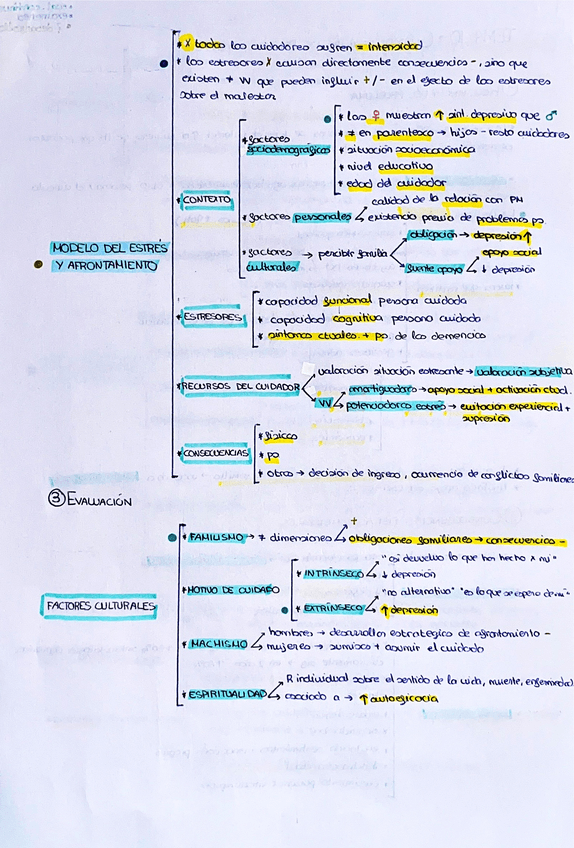 * x todos los cuidadores sufren = intensidad
* los estresores x causan directamente consecuencias -, sino que
existen ≠ VV que pueden influir +/- en el efecto de los estresores
sobre el malestar
* las ♀ muestran ↑ sint. depresivo que ♂
* ≠ en parentesco → hijos - resto cuidadores
* situación socioeconómica
* nivel educativo
* edad del cuidador
* factores
sociodemográficos
* CONTEXTO
calidad de la relación con PM
* factores personales existencia previa de problemas ps.
obligación → depresión ↑
* factores → percibir familia
culturales
apoyo social
fuente apoyo ↓ depresión
MODELO DEL ESTRÉS
Y AFRONTAMIENTO
* ESTRESORES
* capacidad funcional persona cuidada
* capacidad cognitiva persona cuidada
* síntomas ctuales. + ps. de las demencias
* RECURSOS DEL CUIDADOR
valoración situación estresante → valoración subjetiva
VV
amortiguadoras → apoyo social + activación ctual.
potenciadoras estrés → evitación experiencial +
supresión
* CONSECUENCIAS
* físicas
* ps
* otras → decisión de ingreso, ocurrencia de conflictos familiares
③ EVALUACIÓN
FACTORES CULTURALES
* FAMILISMO → ≠ dimensiones
+
obligaciones familiares → consecuencias -
* MOTIVO DE CUIDADO
* INTRÍNSECO
"así devuelvo lo que han hecho x mi"
↓ depresión
* EXTRÍNSECO
"no alternativa" "es lo que se espera de mi"
↑ depresión
* MACHISMO
hombres → desarrollan estrategias de afrontamiento -
mujeres → sumisas + asumir el cuidado
* ESPIRITUALIDAD
R individual sobre el sentido de la vida, muerte, enfermedad
asociado a → ↑ autoeficacia